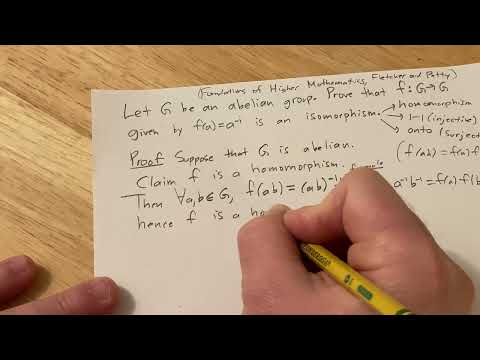 (Foundations of Higher Mathematics, Fletcher and Patty)
Let G be an abelian group. Prove that f: G→G
given by f(a)=a⁻¹ is an isomorphism. → homomorphism
→ 1-1 (injective)
→ onto (surject
Proof Suppose that G is abelian. (f(ab) = f(a)f
Claim f is a homomorphism.
Then ∀a,b∈G, f(ab) = (ab)⁻¹ a⁻¹b⁻¹ = f(a)f(b
hence f is a ho